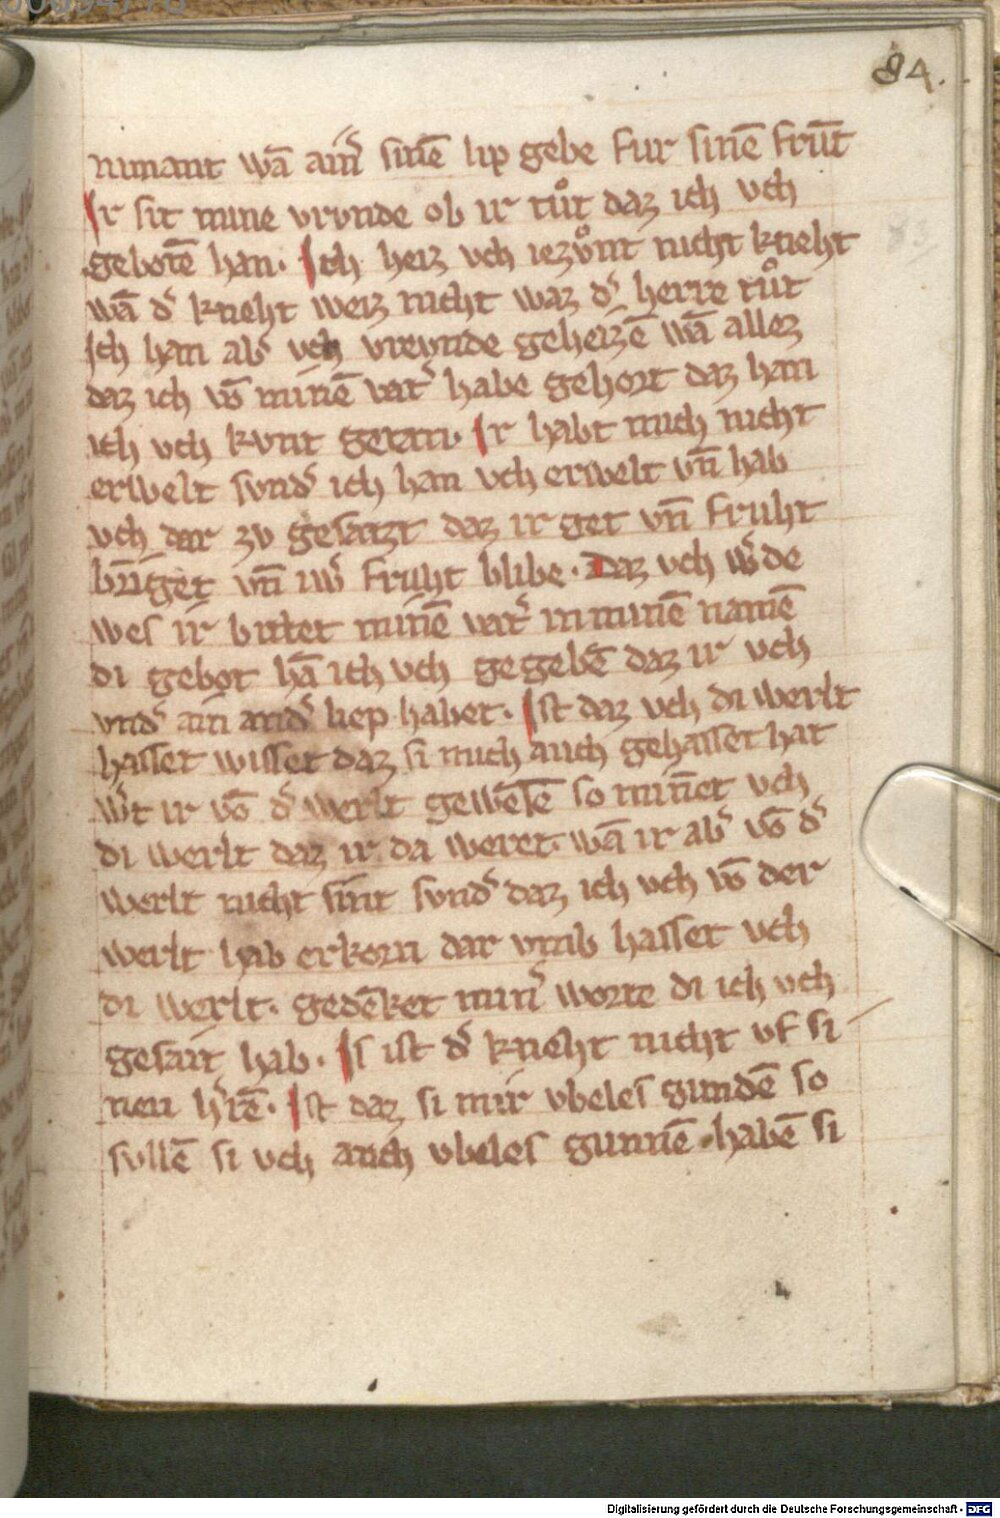 84.
nimant wā ain̄ sinē lip gebe fur sinē frūt
Ir sit mine vrvnde ob ir tůt daz ich vch
gebotē han. Ich heiz vch iezvͦnt nicht kneht
wā dˢ kneht weiz nicht waz dˢ herre tůt
Ich han abˢ vch vrevnde geheizē wā allez
daz ich vō minē vatˢ habe gehort daz han
ich vch kvnt getan. Ir habt mich nicht
erwelt svndˢ ich han vch erwelt vn̄ hab
vch dar zv gesatzt daz ir get vn̄ fruht
br̄iget vn̄ iwˢ fruht blibe. Daz vch wˢde
wes ir bittet minē vatˢ in minē namē
di gebot hā ich vch gegebē daz ir vch
vndˢ ain andˢ liep habet. Ist daz vch di werlt
hasset wisset daz si mich auch gehasset hat
wˢt ir vō dˢ werlt gewesē so min̄et vch
di werlt daz ir da weret. wā ir abˢ vō dˢ
werlt nicht sint svndˢ daz ich vch vō der
werlt hab erkorn dar vmb hasset vch
di werlt. gedēket minˢ worte di ich vch
gesait hab. Is ist dˢ kneht nicht vf si
nen hˢrē. Ist daz si mir vbeles gundē so
svllē si vch auch vbeles gunnē. habē si
Digitalisierung gefördert durch die Deutsche Forschungsgemeinschaft - DFG